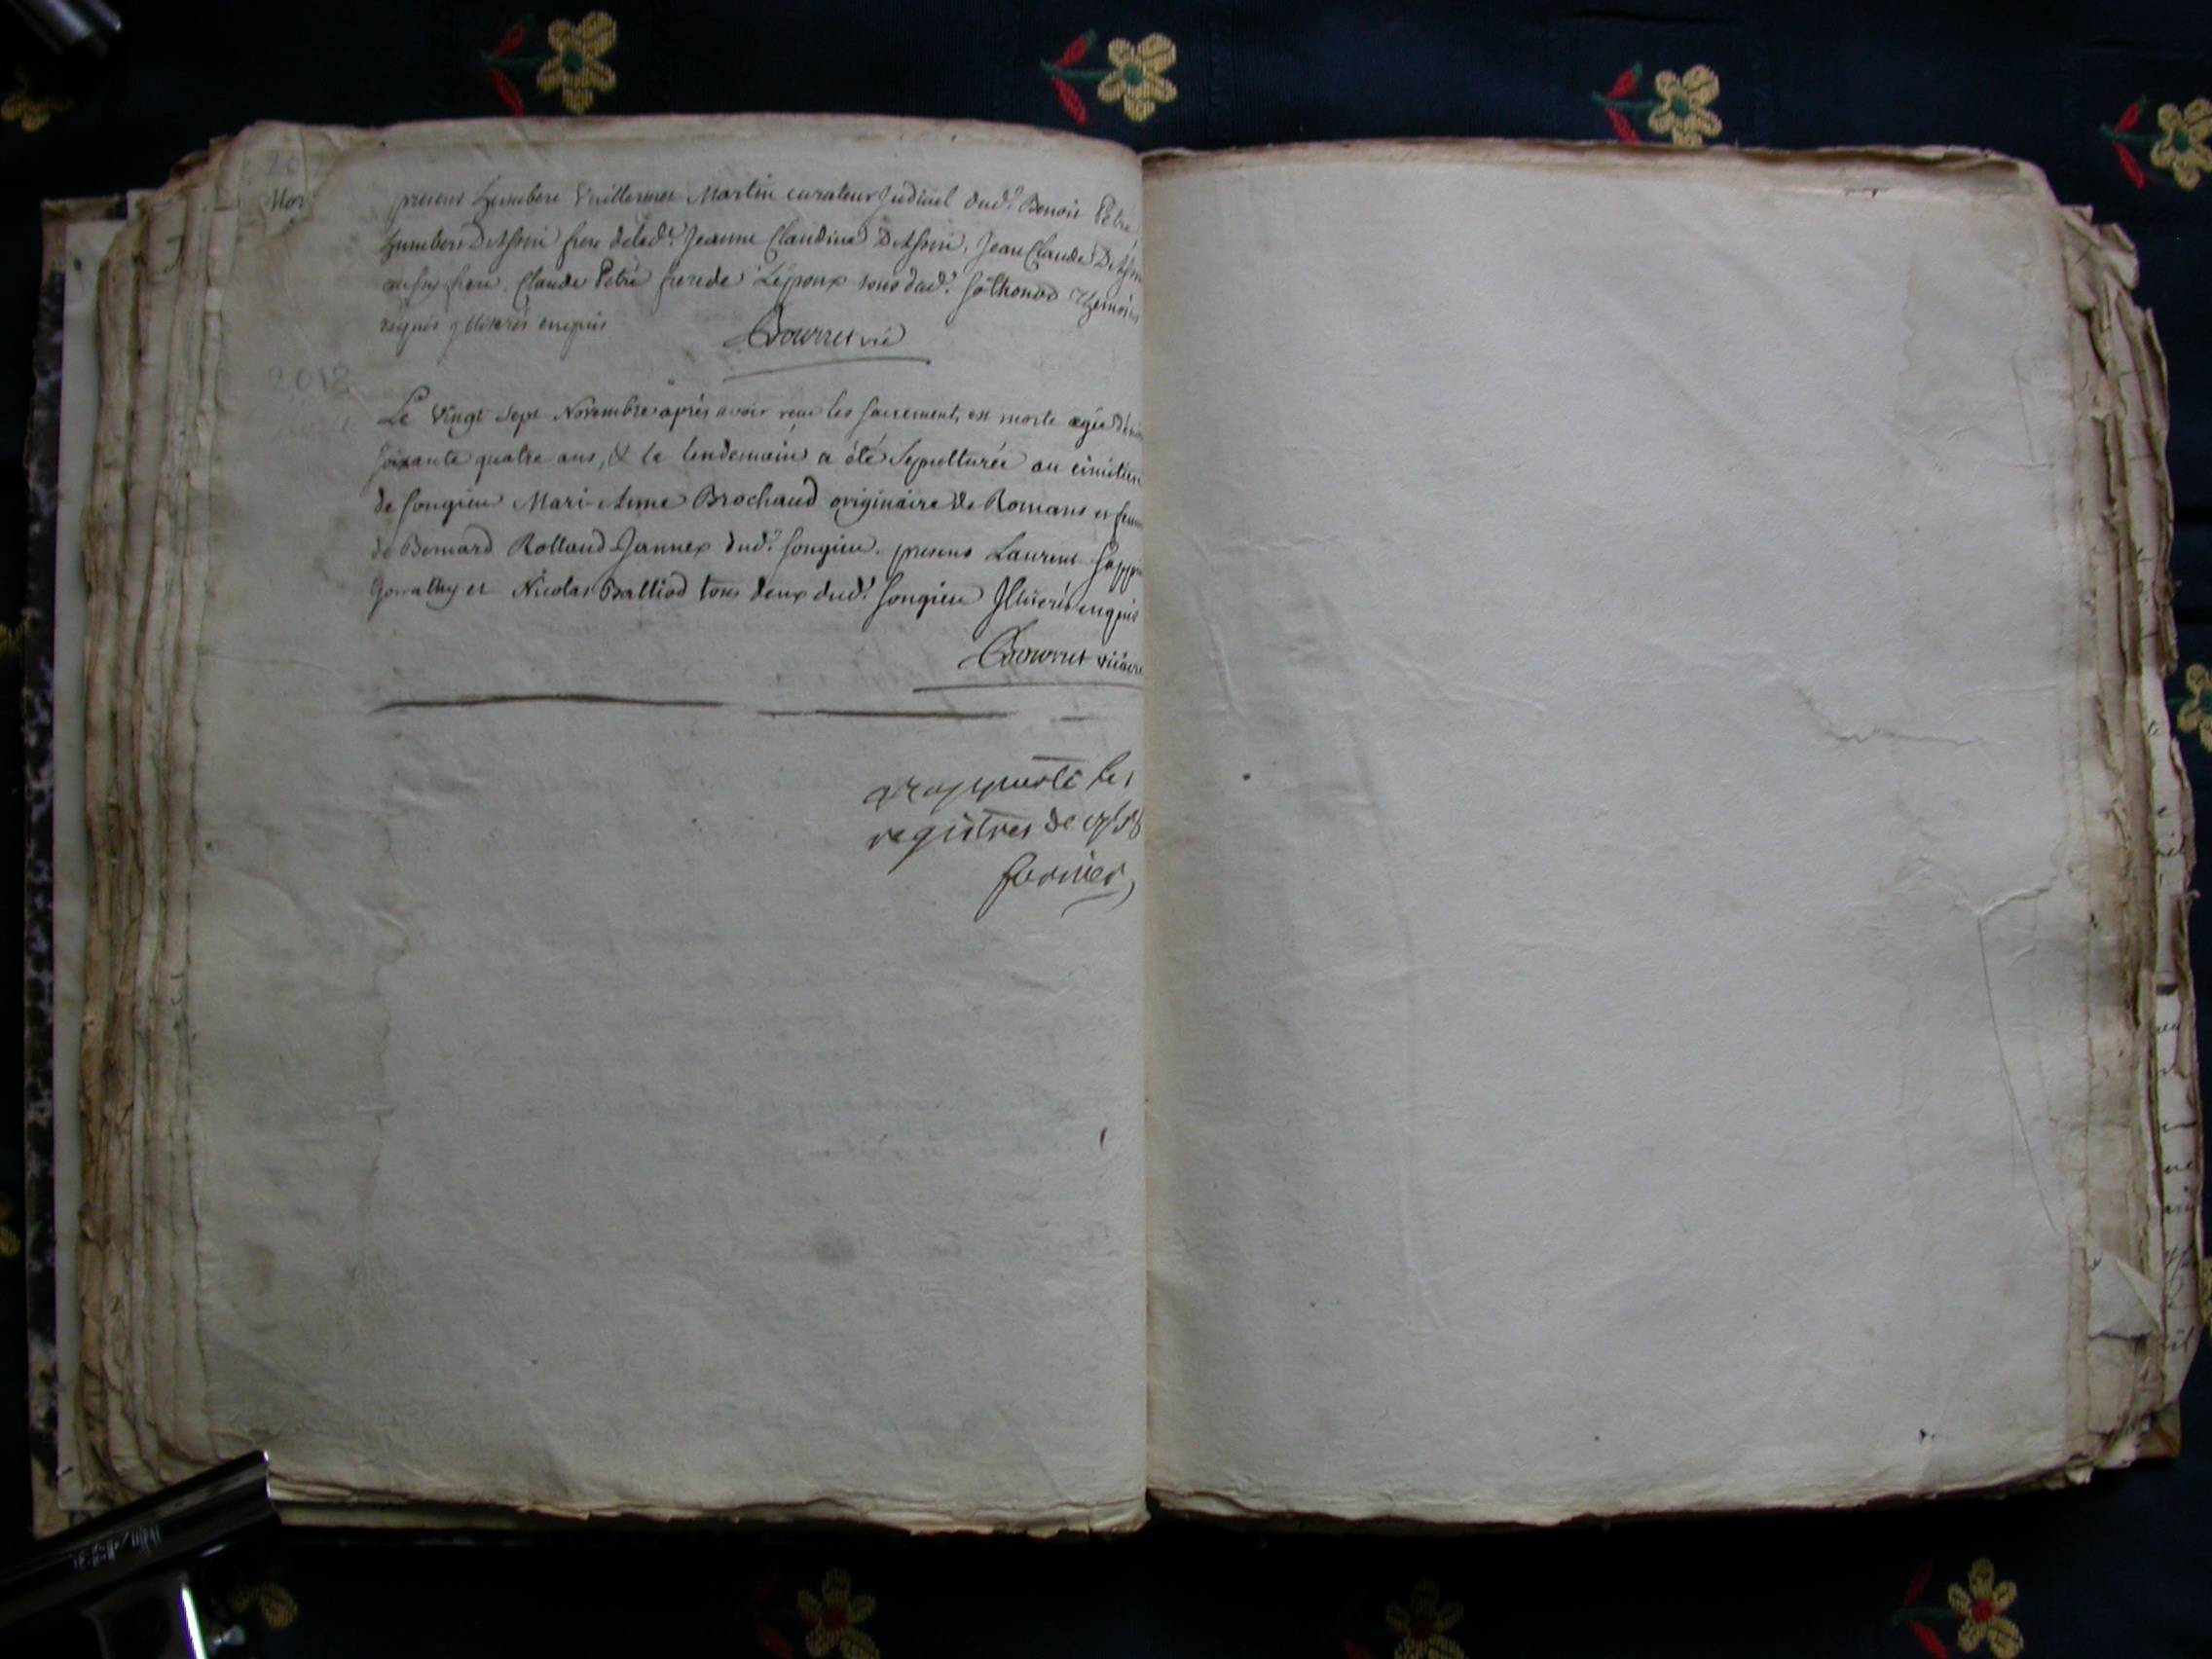 Mor
present humbert Vuillermoz Martin curateur Judiciel dud.t Benoit Petré
humbert frere delad.te Jeanne Claudine Jean Claude
aussy frere, Claude Petré frere de L'époux tous dud.t Sothonod Themoins
requis illiterés enquis
Bourret vic
2018
Le Vingt Sept Novembre après avoir reçu les sacrement, est morte agée d'environ
soixante quatre ans, & le lendemain a été Sepulturée au cimitiere
de Songieu Mari-Anne Brochaud originaire de Romans et femme
de Bernard Rolland-Jannex dud.t Songieu. presens Laurent
et Nicolas Balliod tous deux dud.t Songieu Illiterés enquis
Bourret vicaire
apporté les
registres de